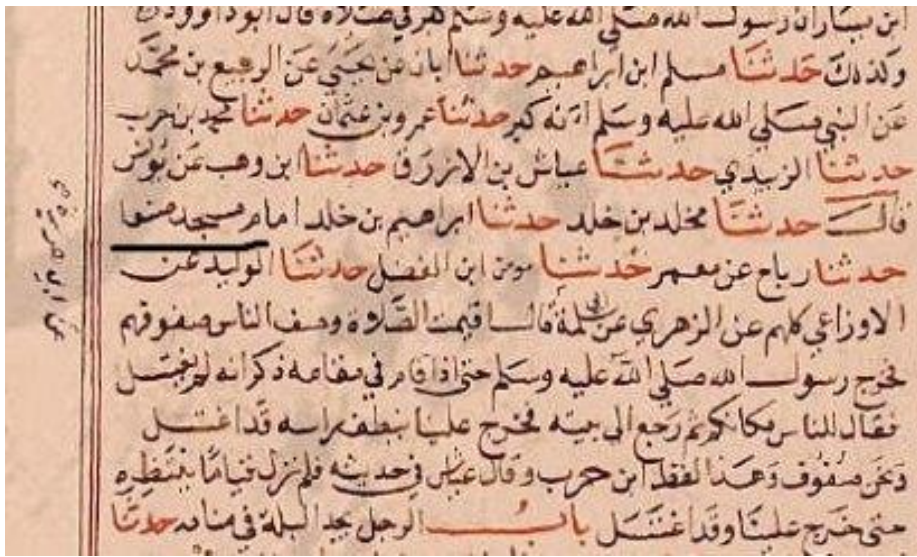 ابن يسار ان رسول الله صلى الله عليه وسلم كبر في صلاة قال ابو داوود
وكذلك حدثنا مسلم ابن ابراهيم حدثنا ابان عن يحيى عن الربيع بن محمد
عن النبي صلي الله عليه وسلم انه كبر حدثنا عمرو بن عثمان حدثنا محمد بن حرب
حدثنا الزبيدي حدثنا عياش بن الازرق حدثنا ابن وهب عن يونس
قال حدثنا مخلد بن خلد حدثنا ابراهيم بن خلد امام مسجد صنعا
حدثنا رباح عن معمر حدثنا مومن ابن الفضل حدثنا الوليد عن
الاوزاعي كلهم عن الزهري عن ابي سلمة قال اقيمت الصلاة وصف الناس صفوفهم
فخرج رسول الله صلي الله عليه وسلم حتى اذا قام في مقامه ذكر انه لم يغتسل
فقال للناس مكانكم ثم رجع الى بيته فخرج علينا ينطف راسه قد اغتسل
ونحن صفوف وهذا لفظ ابن حرب وقال عياش في حديثه فلم نزل قياما ننتظره
حتى خرج علينا وقد اغتسل باب الرجل يجد البلة في منامه حدثنا
عن ابي هريرة